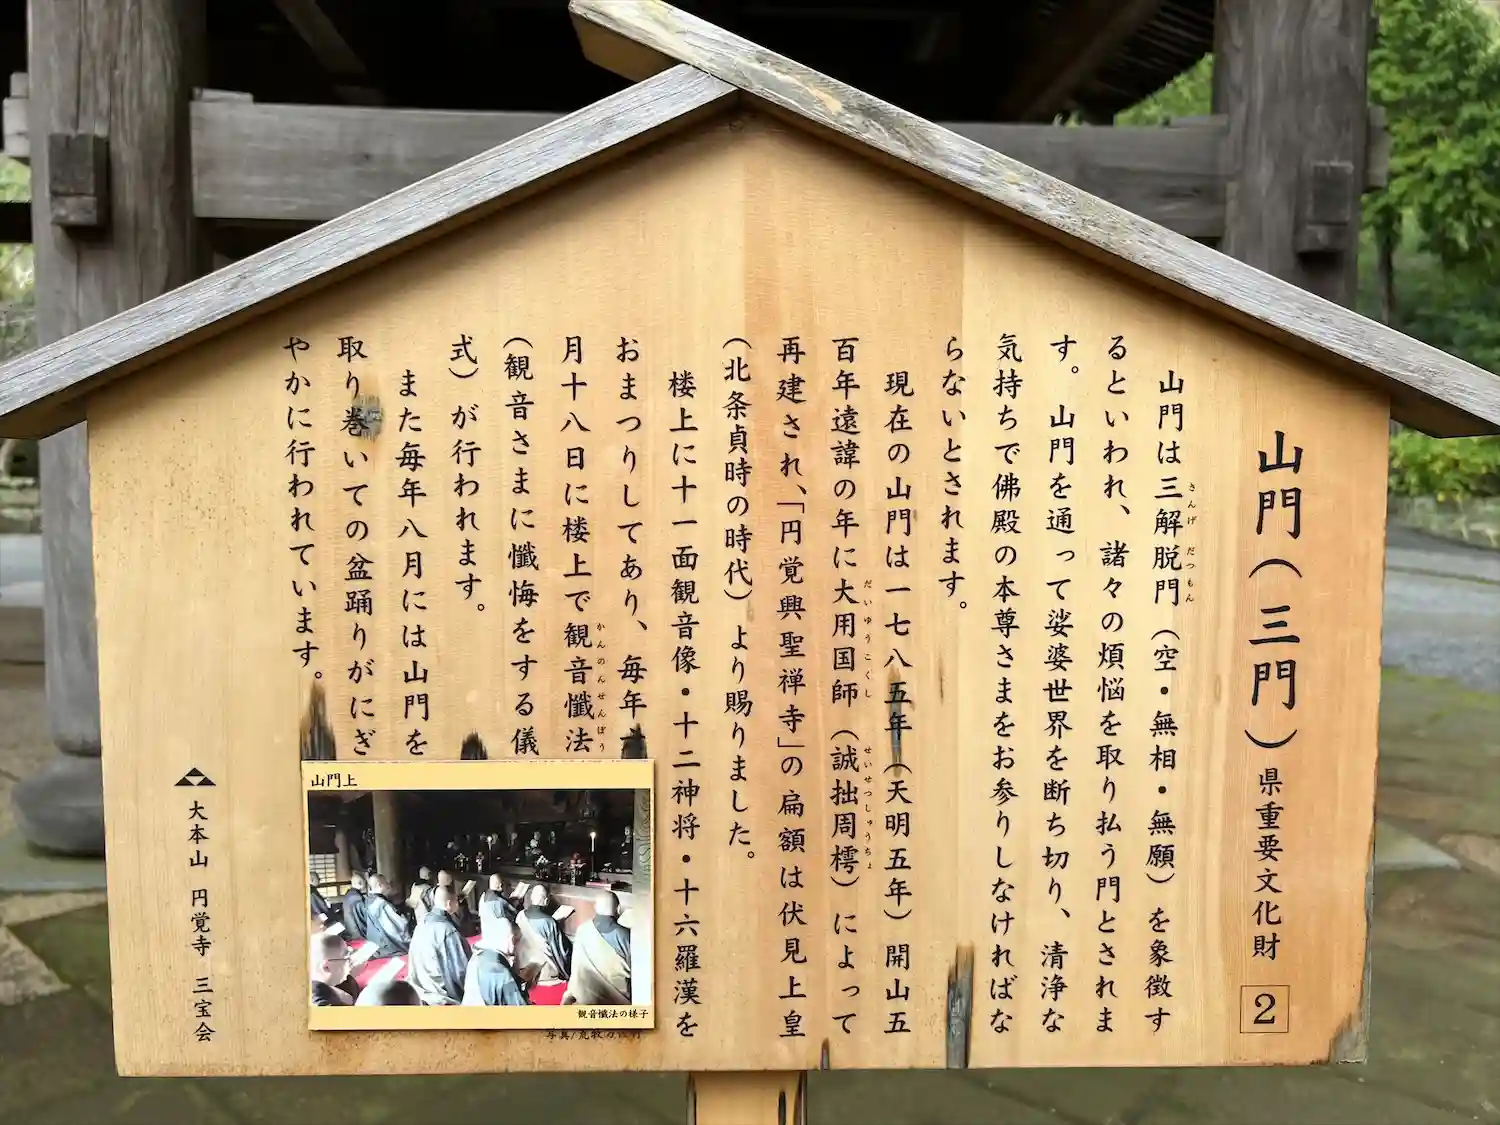 山門(三門)県重要文化財 2
山門は三解脱門(空・無相・無願)を象徴す
さんげだつもん
るといわれ、諸々の煩悩を取り払う門とされま
す。山門を通って娑婆世界を断ち切り、清浄な
気持ちで佛殿の本尊さまをお参りしなければな
らないとされます。
現在の山門は一七八五年(天明五年)開山五
百年遠諱の年に大用国師(誠拙周樗)によって
だいゆうこくし せいせつしゅうちょ
再建され、「円覚興聖禅寺」の扁額は伏見上皇
(北条貞時の時代)より賜りました。
楼上に十一面観音像・十二神将・十六羅漢を
おまつりしてあり、毎年
月十八日に楼上で観音懺法
かんのんせんぼう
(観音さまに懺悔をする儀
式)が行われます。
また毎年八月には山門を
取り巻いての盆踊りがにぎ
やかに行われています。
山門上
観音懺法の様子
写真/荒牧
大本山 円覚寺 三宝会